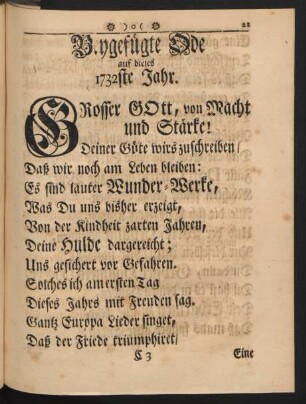 )o( 21
B.ygefügte Ode
auf dieses
1732ste Jahr.
GRosser GOtt, von Macht
und Stärke!
Deiner Güte wirs zuschreiben/
Daß wir noch am Leben bleiben:
Es sind lauter Wunder-Werke,
Was Du uns bisher erzeigt,
Von der Kindheit zarten Jahren,
Deine Hulde dargereicht;
Uns gesichert vor Gefahren.
Solches ich am ersten Tag
Dieses Jahrs mit Freuden sag.
Gantz Europa Lieder singet,
Daß der Friede triumphiret/
C 3 Eine